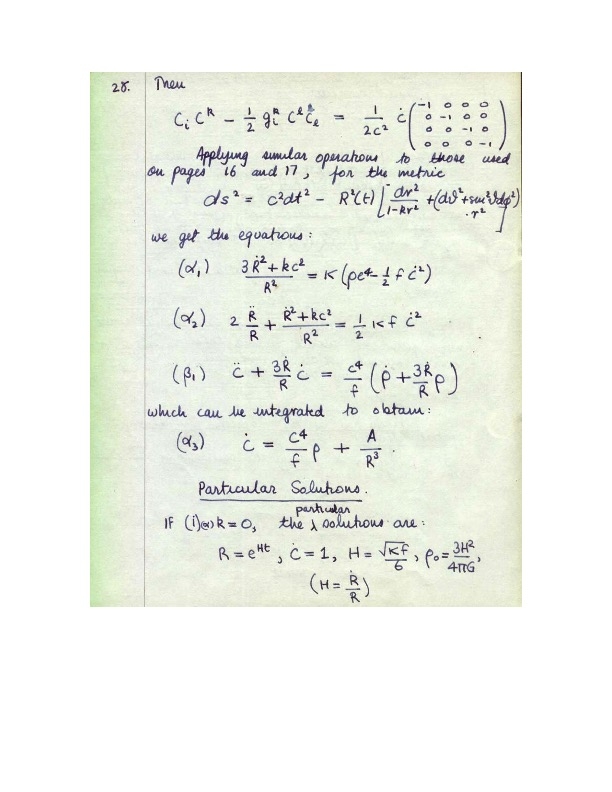 28. Then
C_i C^k - 1/2 g_i^k C^l C_l = 1/2c² ċ ( -1 0 0 0
0 -1 0 0
0 0 -1 0
0 0 0 -1 )
Applying similar operations to those used
on pages 16 and 17, for the metric
ds² = c²dt² - R²(t) [ dr²/1-kr² + (dϑ² + sin²ϑdϕ²) · r² ]
we get the equations:
(α₁) 3Ṙ² + kc² / R² = κ (ρc⁴ - 1/2 f ċ²)
(α₂) 2 R̈/R + Ṙ² + kc² / R² = 1/2 κ f ċ²
(β₁) c̈ + 3Ṙ/R ċ = c⁴/f (ρ̇ + 3Ṙ/R ρ)
which can be integrated to obtain:
(α₃) ċ = c⁴/f ρ + A/R³ .
Particular Solutions.
If (i) k = 0, the particular solutions are:
R = e^Ht , Ċ = 1, H = √κf/6 , ρ₀ = 3H²/4πG ,
(H = Ṙ/R)